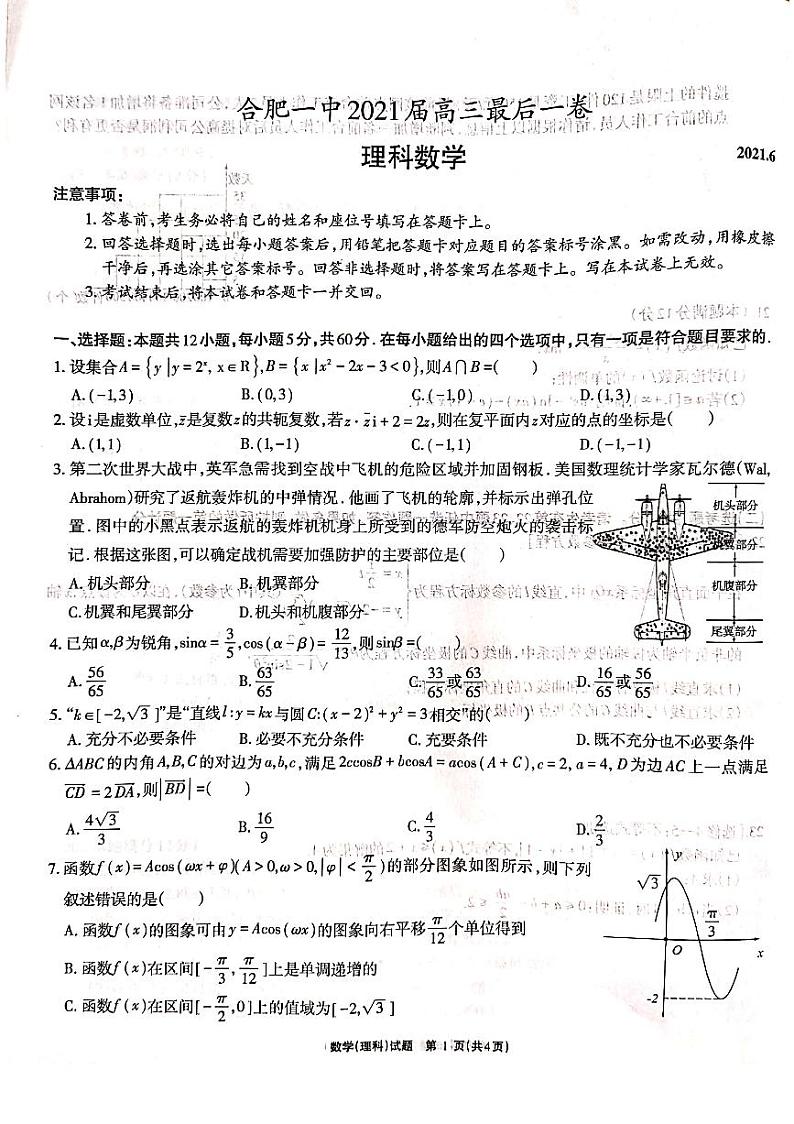 合肥一中2021届高三最后一卷
理科数学
2021.6
注意事项：
1.答卷前,考生务必将自己的姓名和座位号填写在答题卡上。
2.回答选择题时,选出每小题答案后,用铅笔把答题卡对应题目的答案标号涂黑。如需改动,用橡皮擦
干净后,再选涂其它答案标号。回答非选择题时,将答案写在答题卡上。写在本试卷上无效。
3.考试结束后,将本试卷和答题卡一并交回。
一、选择题:本题共12小题,每小题5分,共60分.在每小题给出的四个选项中,只有一项是符合题目要求的.
1.设集合A={y|y=2ˣ, x∈R},B={x|x²-2x-3<0},则A∩B=(　　)
A.(-1,3)　B.(0,3)　C.(-1,0)　D.(1,3)
2.设i是虚数单位,z̄是复数z的共轭复数,若z·z̄i+2=2z,则在复平面内z对应的点的坐标是(　　)
A.(1,1)　B.(1,-1)　C.(-1,1)　D.(-1,-1)
3.第二次世界大战中,英军急需找到空战中飞机的危险区域并加固钢板.美国数理统计学家瓦尔德(Wal,
Abrahom)研究了返航轰炸机的中弹情况.他画了飞机的轮廓,并标示出弹孔位
置.图中的小黑点表示返航的轰炸机机身上所受到的德军防空炮火的袭击标
记.根据这张图,可以确定战机需要加强防护的主要部位是(　　)
A.机头部分　B.机翼部分
C.机翼和尾翼部分　D.机头和机腹部分
机头部分
机翼部分
机腹部分
尾翼部分
4.已知α,β为锐角,sinα=3/5,cos(α-β)=12/13,则sinβ=(　　)
A.56/65　B.63/65　C.33/65或63/65　D.16/65或56/65
5."k∈[-2,√3]"是"直线l:y=kx与圆C:(x-2)²+y²=3相交"的(　　)
A.充分不必要条件　B.必要不充分条件　C.充要条件　D.既不充分也不必要条件
6.ΔABC的内角A,B,C的对边为a,b,c,满足2ccosB+bcosA=acos(A+C),c=2, a=4, D为边AC上一点满足
CD=2DA,则|BD|=(　　)
A.4√3/3　B.16/9　C.4/3　D.2/3
7.函数f(x)=Acos(ωx+φ)(A>0,ω>0,|φ|<π/2)的部分图象如图所示,则下列
叙述错误的是(　　)
A.函数f(x)的图象可由y=Acos(ωx)的图象向右平移π/12个单位得到
B.函数f(x)在区间[-π/3,π/12]上是单调递增的
C.函数f(x)在区间[-π/2,0]上的值域为[-2,√3]
y
√3
π/3
O
x
-2
数学(理科)试题　第1页(共4页)